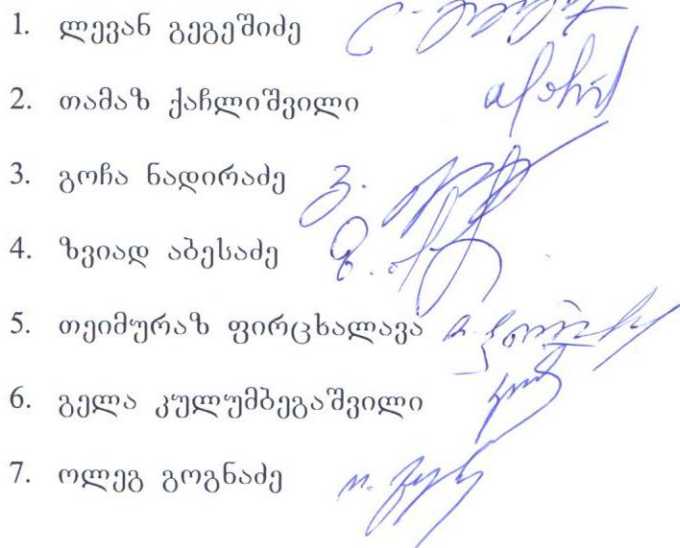 1. ლევან გეგეშიძე
2. თამაზ ქაჩლიშვილი
3. გოჩა ნადირაძე
4. ზვიად აბესაძე
5. თეიმურაზ ფირცხალავა
6. გელა კულუმბეგაშვილი
7. ოლეგ გოგნაძე